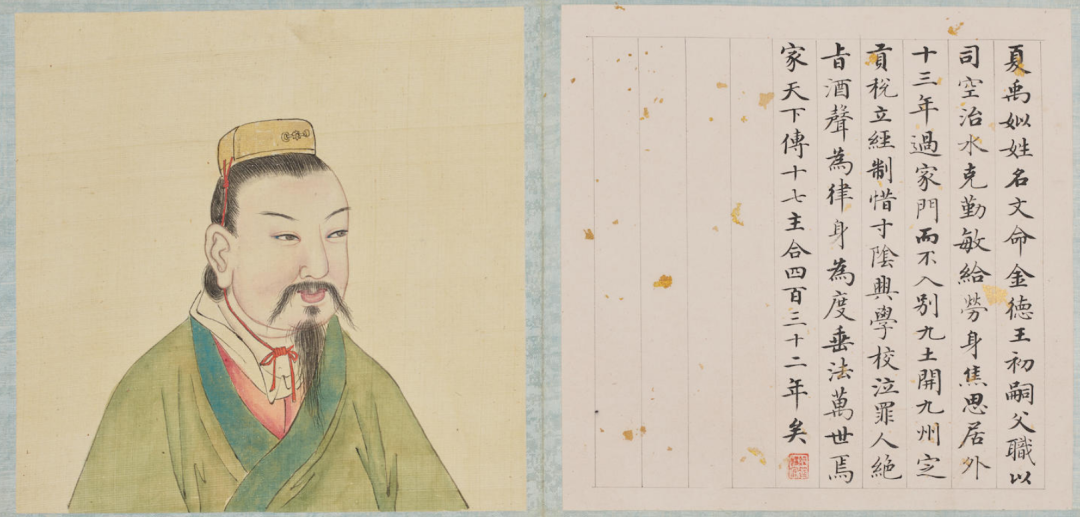 夏禹姒姓名文命金德王初嗣父職以
司空治水克勤敏給勞身焦思居外
十三年過家門而不入別九土開九州定
貢稅立經制惜寸陰興學校泣罪人絕
旨酒聲為律身為度垂法萬世焉
家天下傳十七主合四百三十二年矣